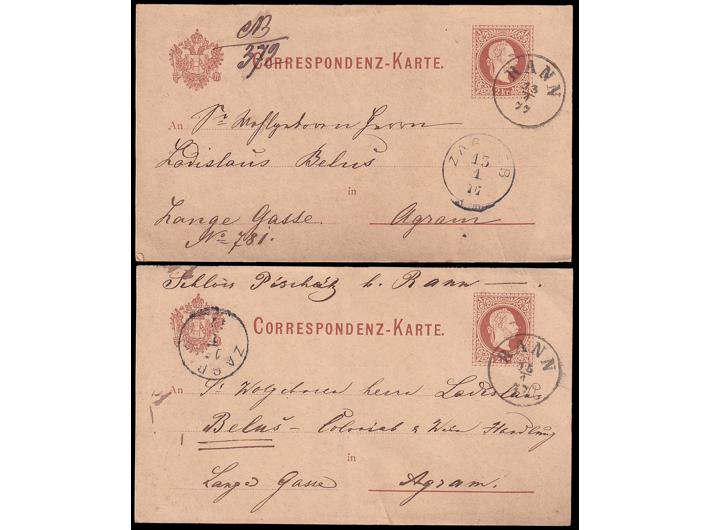 NB
379
CORRESPONDENZ-KARTE.
2 kr.
RANN
13
1
77
An Sr Wohlgeboren Herrn
ZAGREB
13
1
77
Ladislaus Belus
in
Lange Gasse. Agram
No 781.
Schloss Pischätz b. Rann
CORRESPONDENZ-KARTE.
RANN
13
1
77
ZAGR
An Sr Wolgeboren Herrn Ladislaus
Beluš - Colonial & Wein Handlung
in
Lange Gasse Agram.